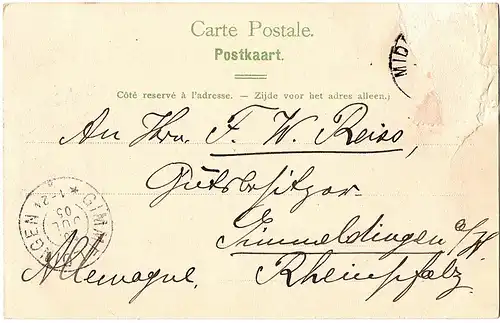 Carte Postale.
Postkaart.
MID
Côté reservé à l'adresse. — Zijde voor het adres alleen.)
An Hrn. F. W. Reiss,
Gutsbesitzer
Gimmeldingen a/H
Allemagne. Rheinpfalz
GIMM NGEN
JUL
05